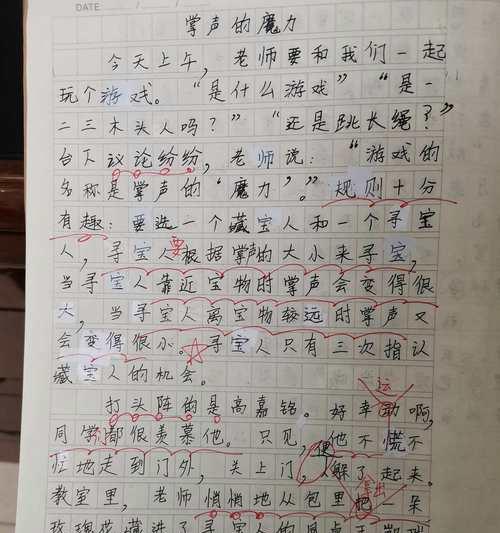 DATE
掌声的魔力
今天上午，老师要和我们一起
玩个游戏。“是什么游戏”“是一
二三木头人吗？”“还是跳长绳？”
台下议论纷纷，老师说：“游戏的
名称是掌声的“魔力”。”规则十分
有趣：要选一个藏宝人和一个寻宝
人，寻宝人要根据掌声的大小来寻宝，
当寻宝人靠近宝物时掌声会变得很
大，当寻宝人离宝物较远时掌声又
会变得很小。寻宝人只有三次指认
藏宝人的机会。
运
打头阵的是高嘉铭。好幸动啊，
同学都很羡慕他。只见，他不慌不
忙地走到门外，关上门，便解了起来。
教室里，老师悄悄地从包里拿出一朵
玫瑰花藏进了寻宝人的